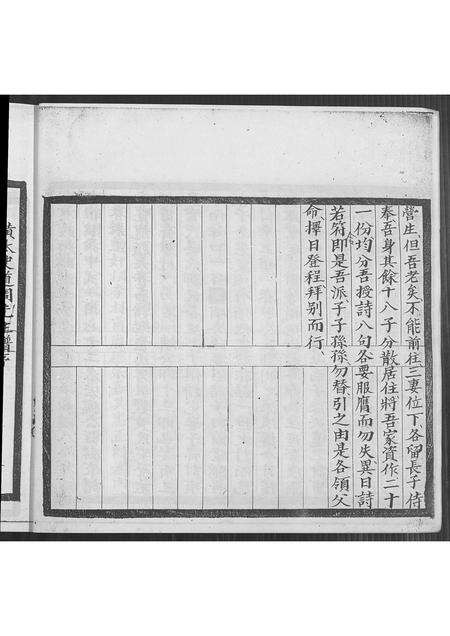 營生但吾老矣不能前往三妻位下各留長子侍
奉吾身其餘十八子分散居住將吾家資作二十
一份均分吾授詩八句各要服膺而勿失異日詩
若符即是吾派子子孫孫勿替引之由是各領父
命擇日登程拜別而行